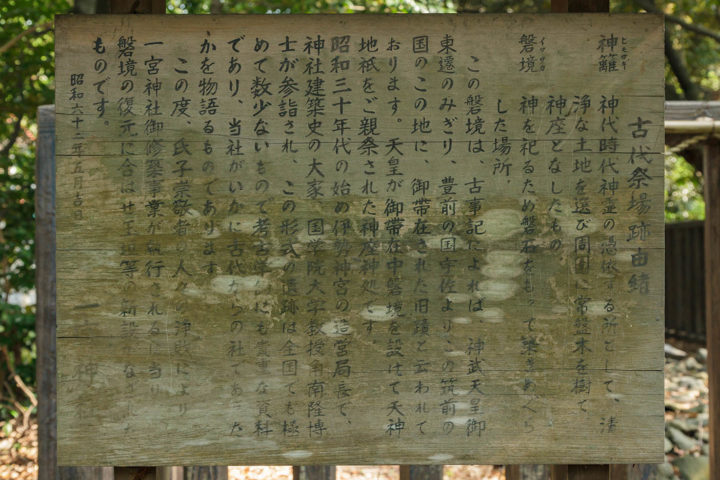 古代祭場跡由緒
ヒモロギ
神籬 神代時代神霊の憑依する所として、清
浄な土地を選び周囲に常盤木を樹て
神座となしたもの
イワサカ
磐境 神を祀るため磐石をもって築きめぐら
した場所
この磐境は、古事記によれば、神武天皇御
東遷のみぎり、豊前の国宇佐より、この筑前の
国のこの地に、御滞在された旧蹟と云われて
おります。天皇が御滞在中磐境を設けて天神
地祇をご親祭された神座神処です。
昭和三十年代の始め伊勢神宮の造営局長で、
神社建築史の大家、国学院大学教授 南隆博
士が参詣され、この形式の遺跡は全国でも極
めて数少ないもので考古学 にも貴重な資料
であり、当社がいかに古代からの社であった
かを物語るものであります。
この度、氏子崇敬者の人々の浄財により
一宮神社御修築事業が執行される 当り
磐境の復元に合はせ玉垣等の新設 なされた
ものです。
昭和六十三年五月吉日
一 神社